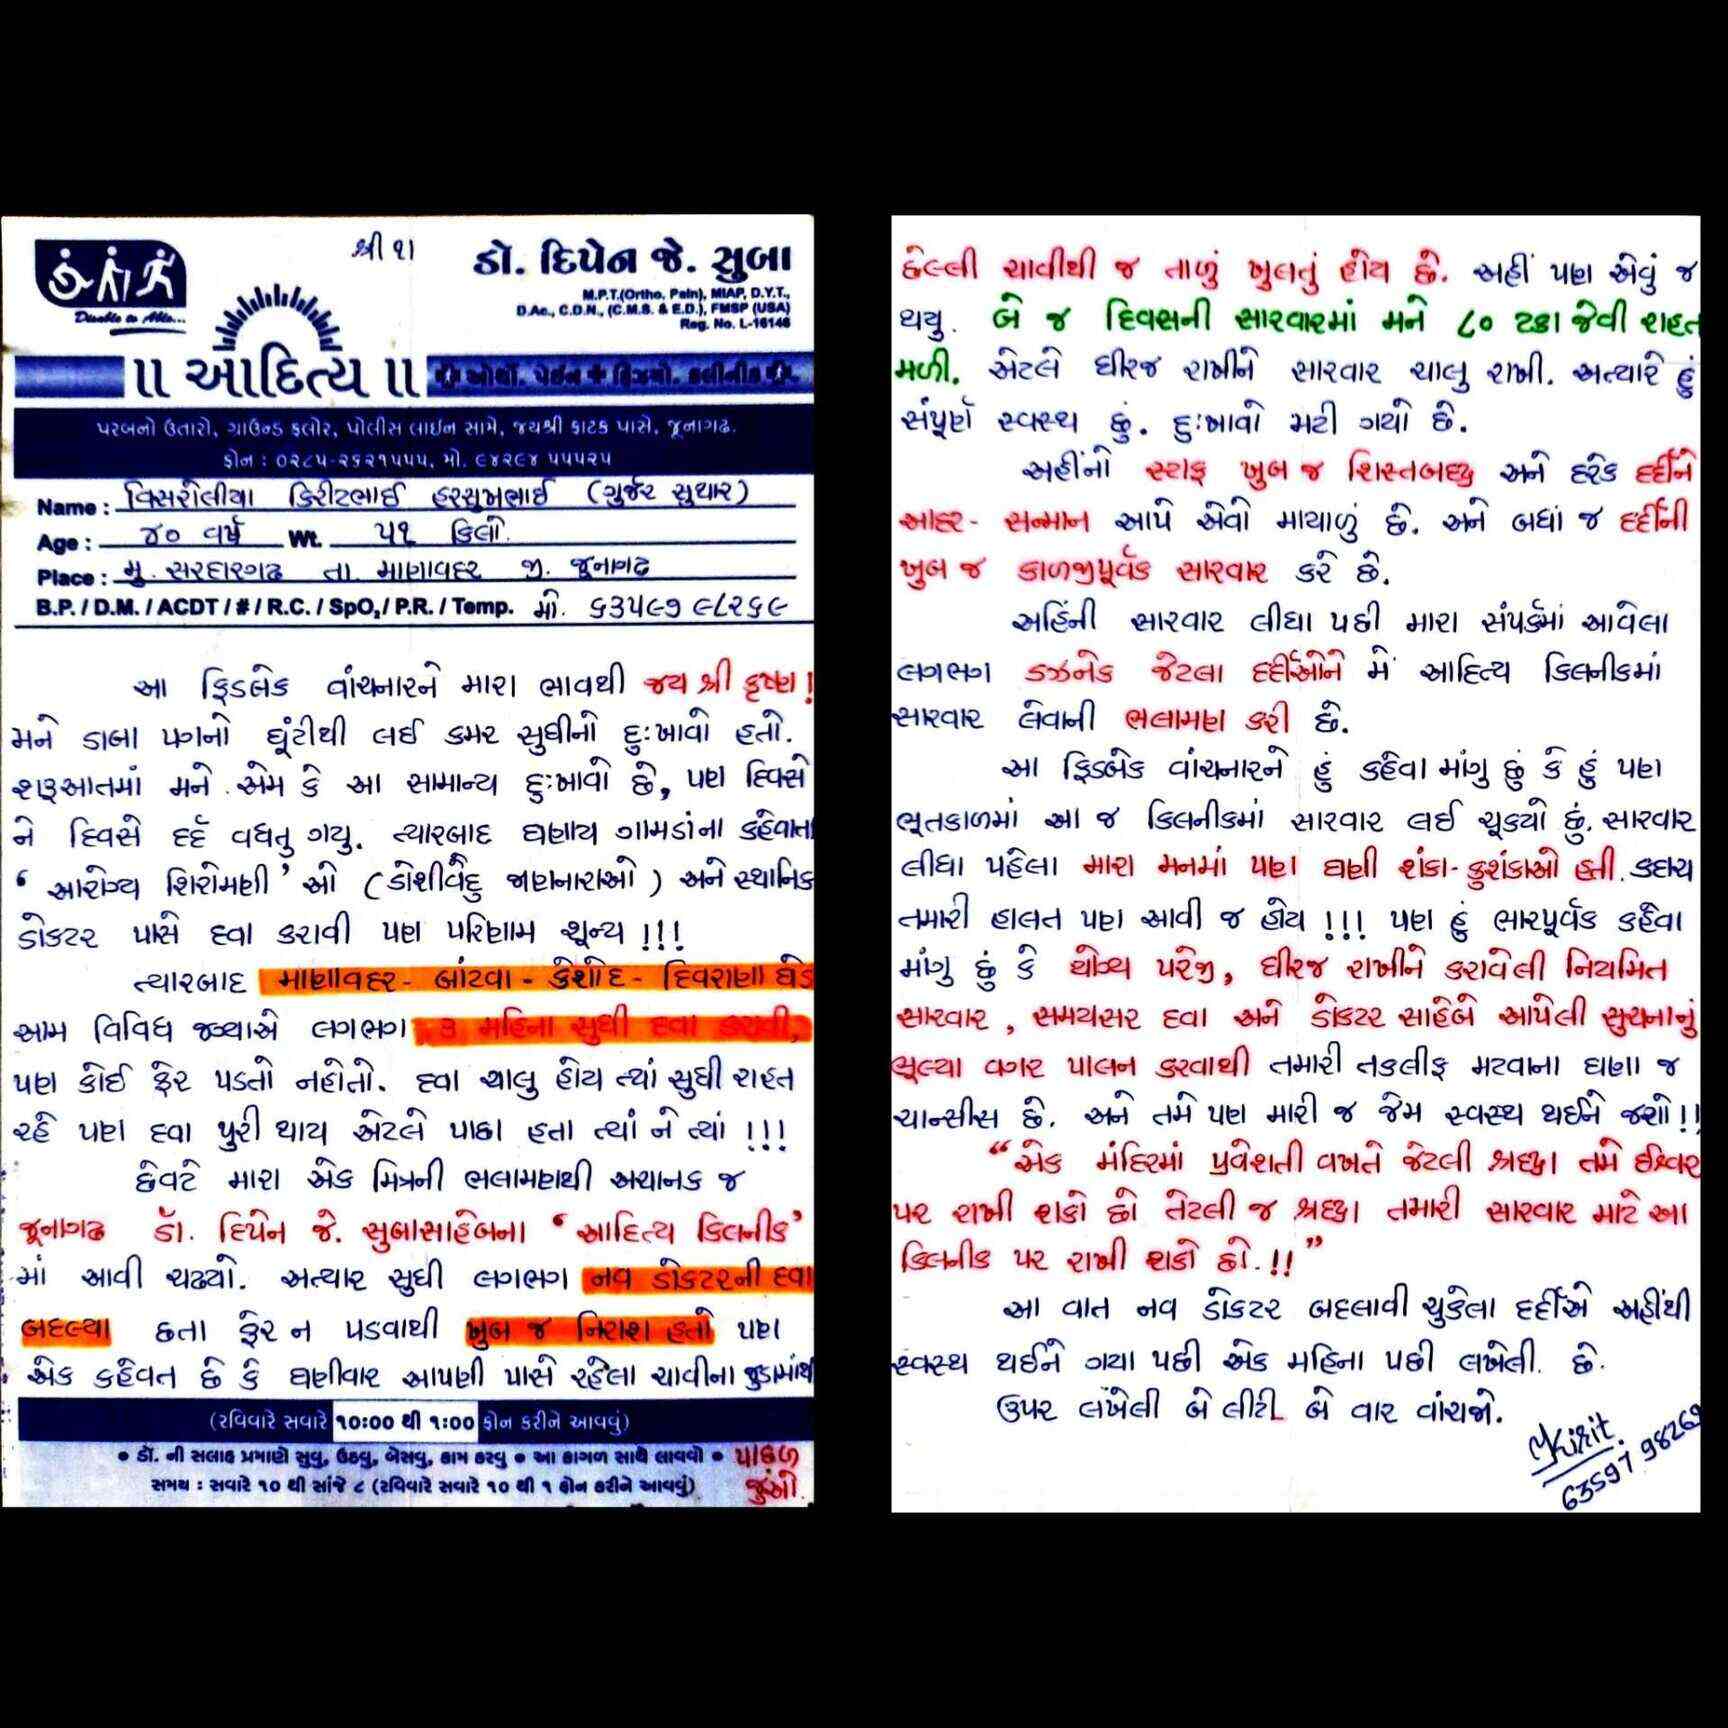 શ્રી ૧।
Disable to Able...
ડો. દિપેન જે. સુબા
M.P.T.(Ortho, Pain), MIAP, D.Y.T.,
D.Ac., C.D.N., (C.M.S. & E.D.), FMSP (USA)
Reg. No. L-16146
॥ આદિત્ય ॥ ઓર્થો. પેઈન + ફિઝીયો. ક્લીનીક
પરબનો ઉતારો, ગ્રાઉન્ડ ફ્લોર, પોલીસ લાઈન સામે, જયશ્રી ફાટક પાસે, જૂનાગઢ.
ફોન : ૦૨૮૫-૨૬૨૧૫૫૫, મો. ૯૪૨૯૪ ૫૫૫૨૫
Name : વિસરોલીયા કિરીટભાઈ હરસુખભાઈ (ગુર્જર સુથાર)
Age : ૪૦ વર્ષ Wt. ૫૧ કિલો.
Place : મુ. સરદારગઢ તા. માણાવદર જી. જૂનાગઢ
B.P. / D.M. / ACDT / # / R.C. / SpO₂ / P.R. / Temp. મો. ૬૩૫૯૭ ૯૮૨૬૯
આ ફિડબેક વાંચનારને મારા ભાવથી જય શ્રી કૃષ્ણ !
મને ડાબા પગનો ઘૂંટીથી લઈ કમર સુધીનો દુઃખાવો હતો.
શરૂઆતમાં મને એમ કે આ સામાન્ય દુઃખાવો છે, પણ દિવસે
ને દિવસે દર્દ વધતુ ગયુ. ત્યારબાદ ઘણાય ગામડાંના કહેવાતા
‘ આરોગ્ય શિરોમણી ’ ઓ (ડોશીવૈદુ જાણનારાઓ) અને સ્થાનિક
ડોકટર પાસે દવા કરાવી પણ પરિણામ શૂન્ય !!!
ત્યારબાદ માણાવદર - બાંટવા - કેશોદ - દિવરાણા ઘેડ
આમ વિવિધ જગ્યાએ લગભગ ૩ મહિના સુધી દવા કરાવી,
પણ કોઈ ફેર પડતો નહોતો. દવા ચાલુ હોય ત્યાં સુધી રાહત
રહે પણ દવા પુરી થાય એટલે પાછા હતા ત્યાં ને ત્યાં !!!
છેવટે મારા એક મિત્રની ભલામણથી અચાનક જ
જૂનાગઢ ડૉ. દિપેન જે. સુબાસાહેબના ‘ આદિત્ય કિલનીક’
માં આવી ચઢ્યો. અત્યાર સુધી લગભગ નવ ડોકટરની દવા
બદલ્યા છતા ફેર ન પડવાથી ખુબ જ નિરાશ હતો પણ
એક કહેવત છે કે ઘણીવાર આપણી પાસે રહેલા ચાવીના જુડામાંથી
(રવિવારે સવારે ૧૦:૦૦ થી ૧:૦૦ ફોન કરીને આવવું)
• ડૉ. ની સલાહ પ્રમાણે સુવુ, ઉઠવુ, બેસવુ, કામ કરવુ • આ કાગળ સાથે લાવવો • પાછળ
સમય : સવારે ૧૦ થી સાંજે ૮ (રવિવારે સવારે ૧૦ થી ૧ ફોન કરીને આવવું) જુઓ.
છેલ્લી ચાવીથી જ તાળું ખુલતું હોય છે. અહીં પણ એવું જ
થયુ. બે જ દિવસની સારવારમાં મને ૮૦ ટકા જેવી રાહત
મળી. એટલે ધીરજ રાખીને સારવાર ચાલુ રાખી. અત્યારે હું
સંપૂર્ણ સ્વસ્થ છું. દુઃખાવો મટી ગયો છે.
અહીંનો સ્ટાફ ખુબ જ શિસ્તબધ્ધ અને દરેક દર્દીને
આદર - સન્માન આપે એવો માયાળું છે. અને બધાં જ દર્દીની
ખુબ જ કાળજીપૂર્વક સારવાર કરે છે.
અહિંની સારવાર લીધા પછી મારા સંપર્કમાં આવેલા
લગભગ ડઝનેક જેટલા દર્દીઓને મેં આદિત્ય કિલનીકમાં
સારવાર લેવાની ભલામણ કરી છે.
આ ફિડબેક વાંચનારને હું કહેવા માંગુ છું કે હું પણ
ભૂતકાળમાં આ જ કિલનીકમાં સારવાર લઈ ચૂક્યો છું. સારવાર
લીધા પહેલા મારા મનમાં પણ ઘણી શંકા-કુશંકાઓ હતી. કદાચ
તમારી હાલત પણ આવી જ હોય !!! પણ હું ભારપૂર્વક કહેવા
માંગુ છું કે યોગ્ય પરેજી, ધીરજ રાખીને કરાવેલી નિયમિત
સારવાર , સમયસર દવા અને ડોકટર સાહેબે આપેલી સુચનાનું
ભૂલ્યા વગર પાલન કરવાથી તમારી તકલીફ મટવાના ઘણા જ
ચાન્સીસ છે. અને તમે પણ મારી જ જેમ સ્વસ્થ થઈને જશો !!
“એક મંદિરમાં પ્રવેશતી વખતે જેટલી શ્રધ્ધા તમે ઈશ્વર
પર રાખી શકો છો તેટલી જ શ્રધ્ધા તમારી સારવાર માટે આ
કિલનીક પર રાખી શકો છો. !!”
આ વાત નવ ડોકટર બદલાવી ચુકેલા દર્દીએ અહીંથી
સ્વસ્થ થઈને ગયા પછી એક મહિના પછી લખેલી છે.
ઉપર લખેલી બે લીટી બે વાર વાંચજો.
Mkirit.
63597 98269